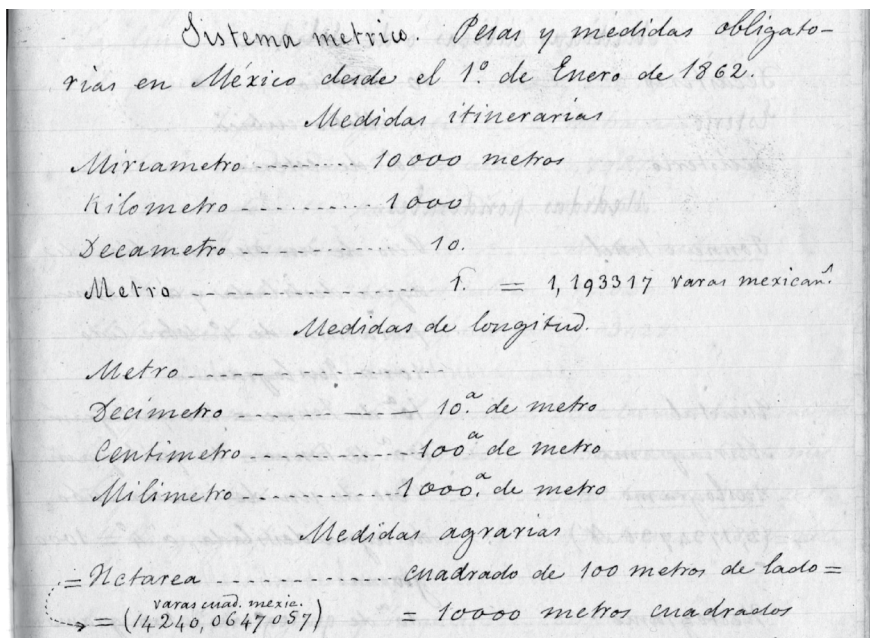 Sistema metrico. Pesas y medidas obligato-
rias en México desde el 1º. de Enero de 1862.
Medidas itinerarias
Miriametro ---------- 10000 metros
Kilometro ---------- 1000
Decametro ---------- 10.
Metro ---------- 1. = 1,193317 varas mexican.ˢ
Medidas de longitud.
Metro ----------
Decimetro ---------- 10.ª de metro
Centimetro ---------- 100ª de metro
Milimetro ---------- 1000.ª de metro
Medidas agrarias
= Hctarea ---------- cuadrado de 100 metros de lado =
varas cuad. mexic.
= (14240,0647057) = 10000 metros cuadrados